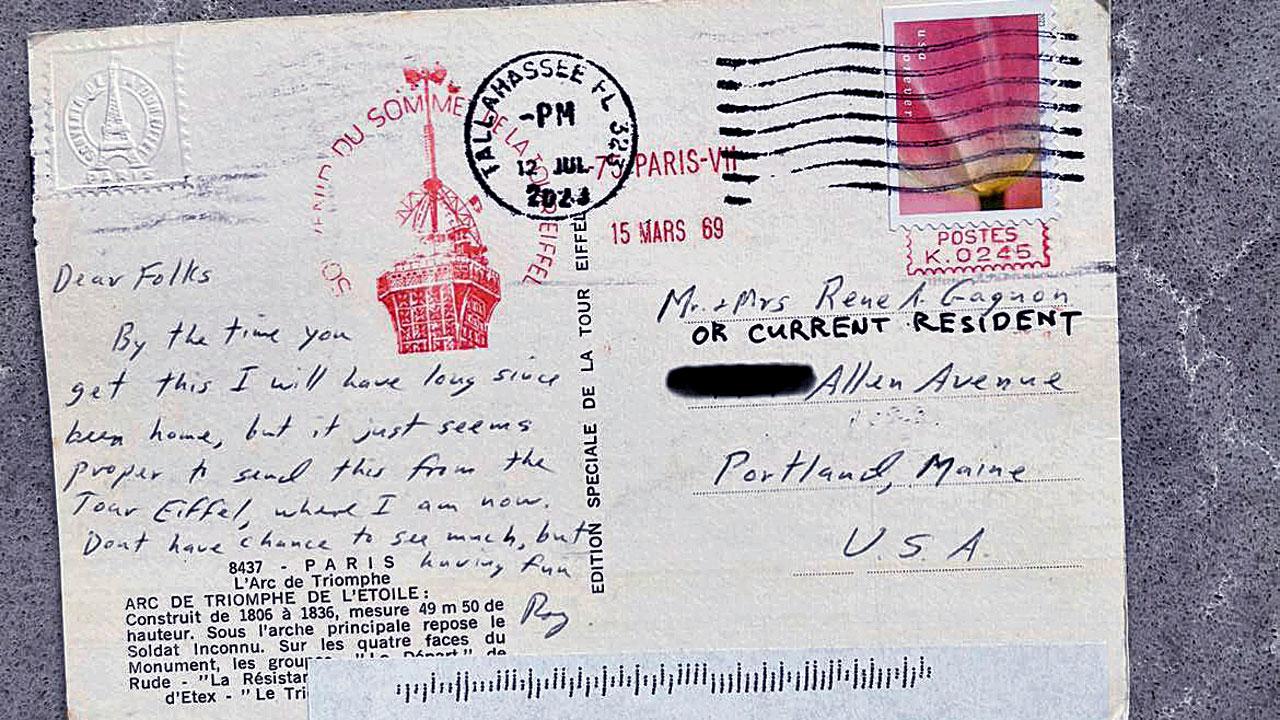 SOUVENIR DU SOMMET DE LA TOUR EIFFEL
TALLAHASSEE FL 323
-PM
12 JUL
2023
75 PARIS-VII
15 MARS 69
USA
forever
POSTES
K.0245
Dear Folks
By the time you
get this I will have long since
been home, but it just seems
proper to send this from the
Tour Eiffel, where I am now.
Dont have chance to see much, but
having fun
Roy
8437 - PARIS
L'Arc de Triomphe
ARC DE TRIOMPHE DE L'ÉTOILE :
Construit de 1806 à 1836, mesure 49 m 50 de
hauteur. Sous l'arche principale repose le
Soldat Inconnu. Sur les quatre faces du
Monument, les group "Le Départ" de
Rude - "La Résistan
d'Etex - "Le Tri
EDITION SPECIALE DE LA TOUR EIFFEL
Mr. + Mrs Rene A. Gagnon
OR CURRENT RESIDENT
Allen Avenue
Portland, Maine
U.S.A.